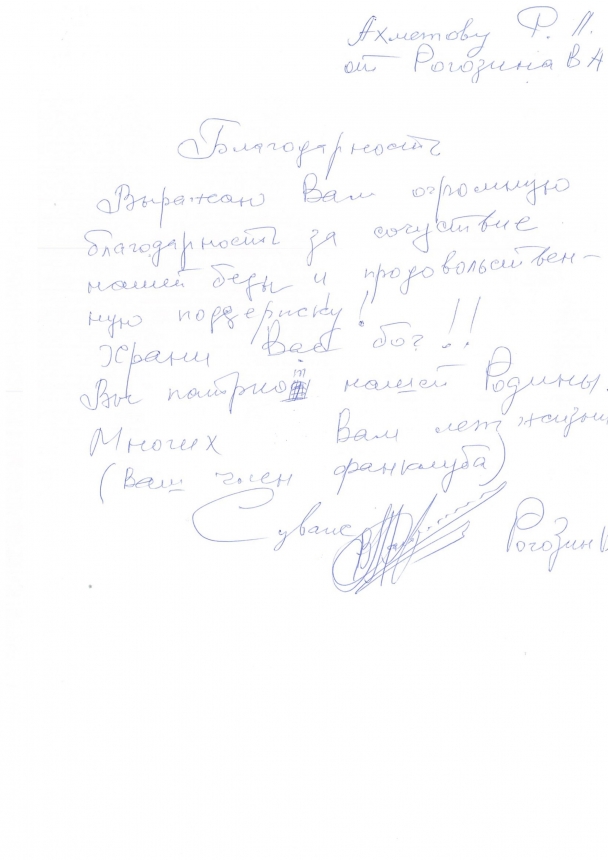 Ахметову Р. Л.
от Рогозина В А
Благодарность
Выражаю Вам огромную
благодарность за сочуствие
нашей беды и продовольствен-
ную поддержку!
Храни Вас бог!!!
Вы патриот нашей Родины.
Многих Вам лет жизни
(Ваш член фанклуба)
С уваже
Рогозин В